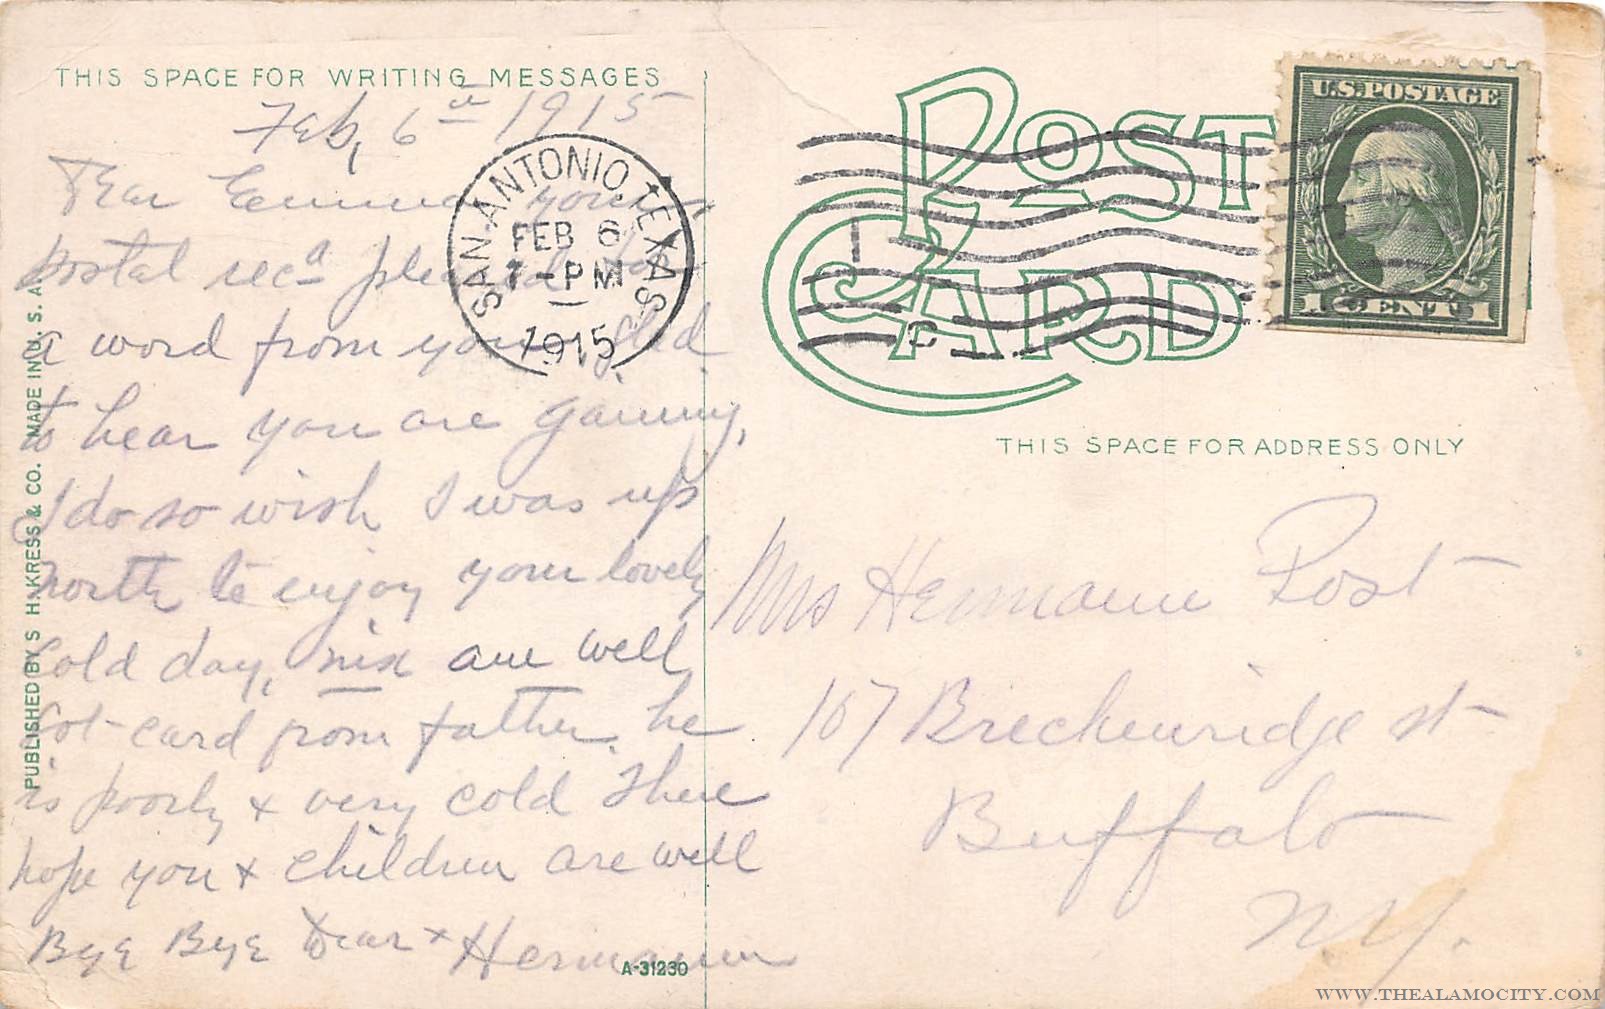 THIS SPACE FOR WRITING MESSAGES
Feb, 6th 1915
Dear Emma your
postal recd pleased
a word from you. Glad
to hear you are gaining,
I do so wish I was up
north to enjoy your lovely
Cold day, nix are well
Got card from father. he
is poorly & very cold There
hope you & children are well
Bye Bye Dear & Hermann
PUBLISHED BY S H. KRESS & CO. MADE IN U. S. A.
A-31230
SAN ANTONIO, TEXAS
FEB 6
7-PM
1915
POST
CARD
U.S. POSTAGE
1 CENT 1
THIS SPACE FOR ADDRESS ONLY
Mrs Hermann Post
167 Breckenridge st
Buffalo
NY.
WWW.THEALAMOCITY.COM